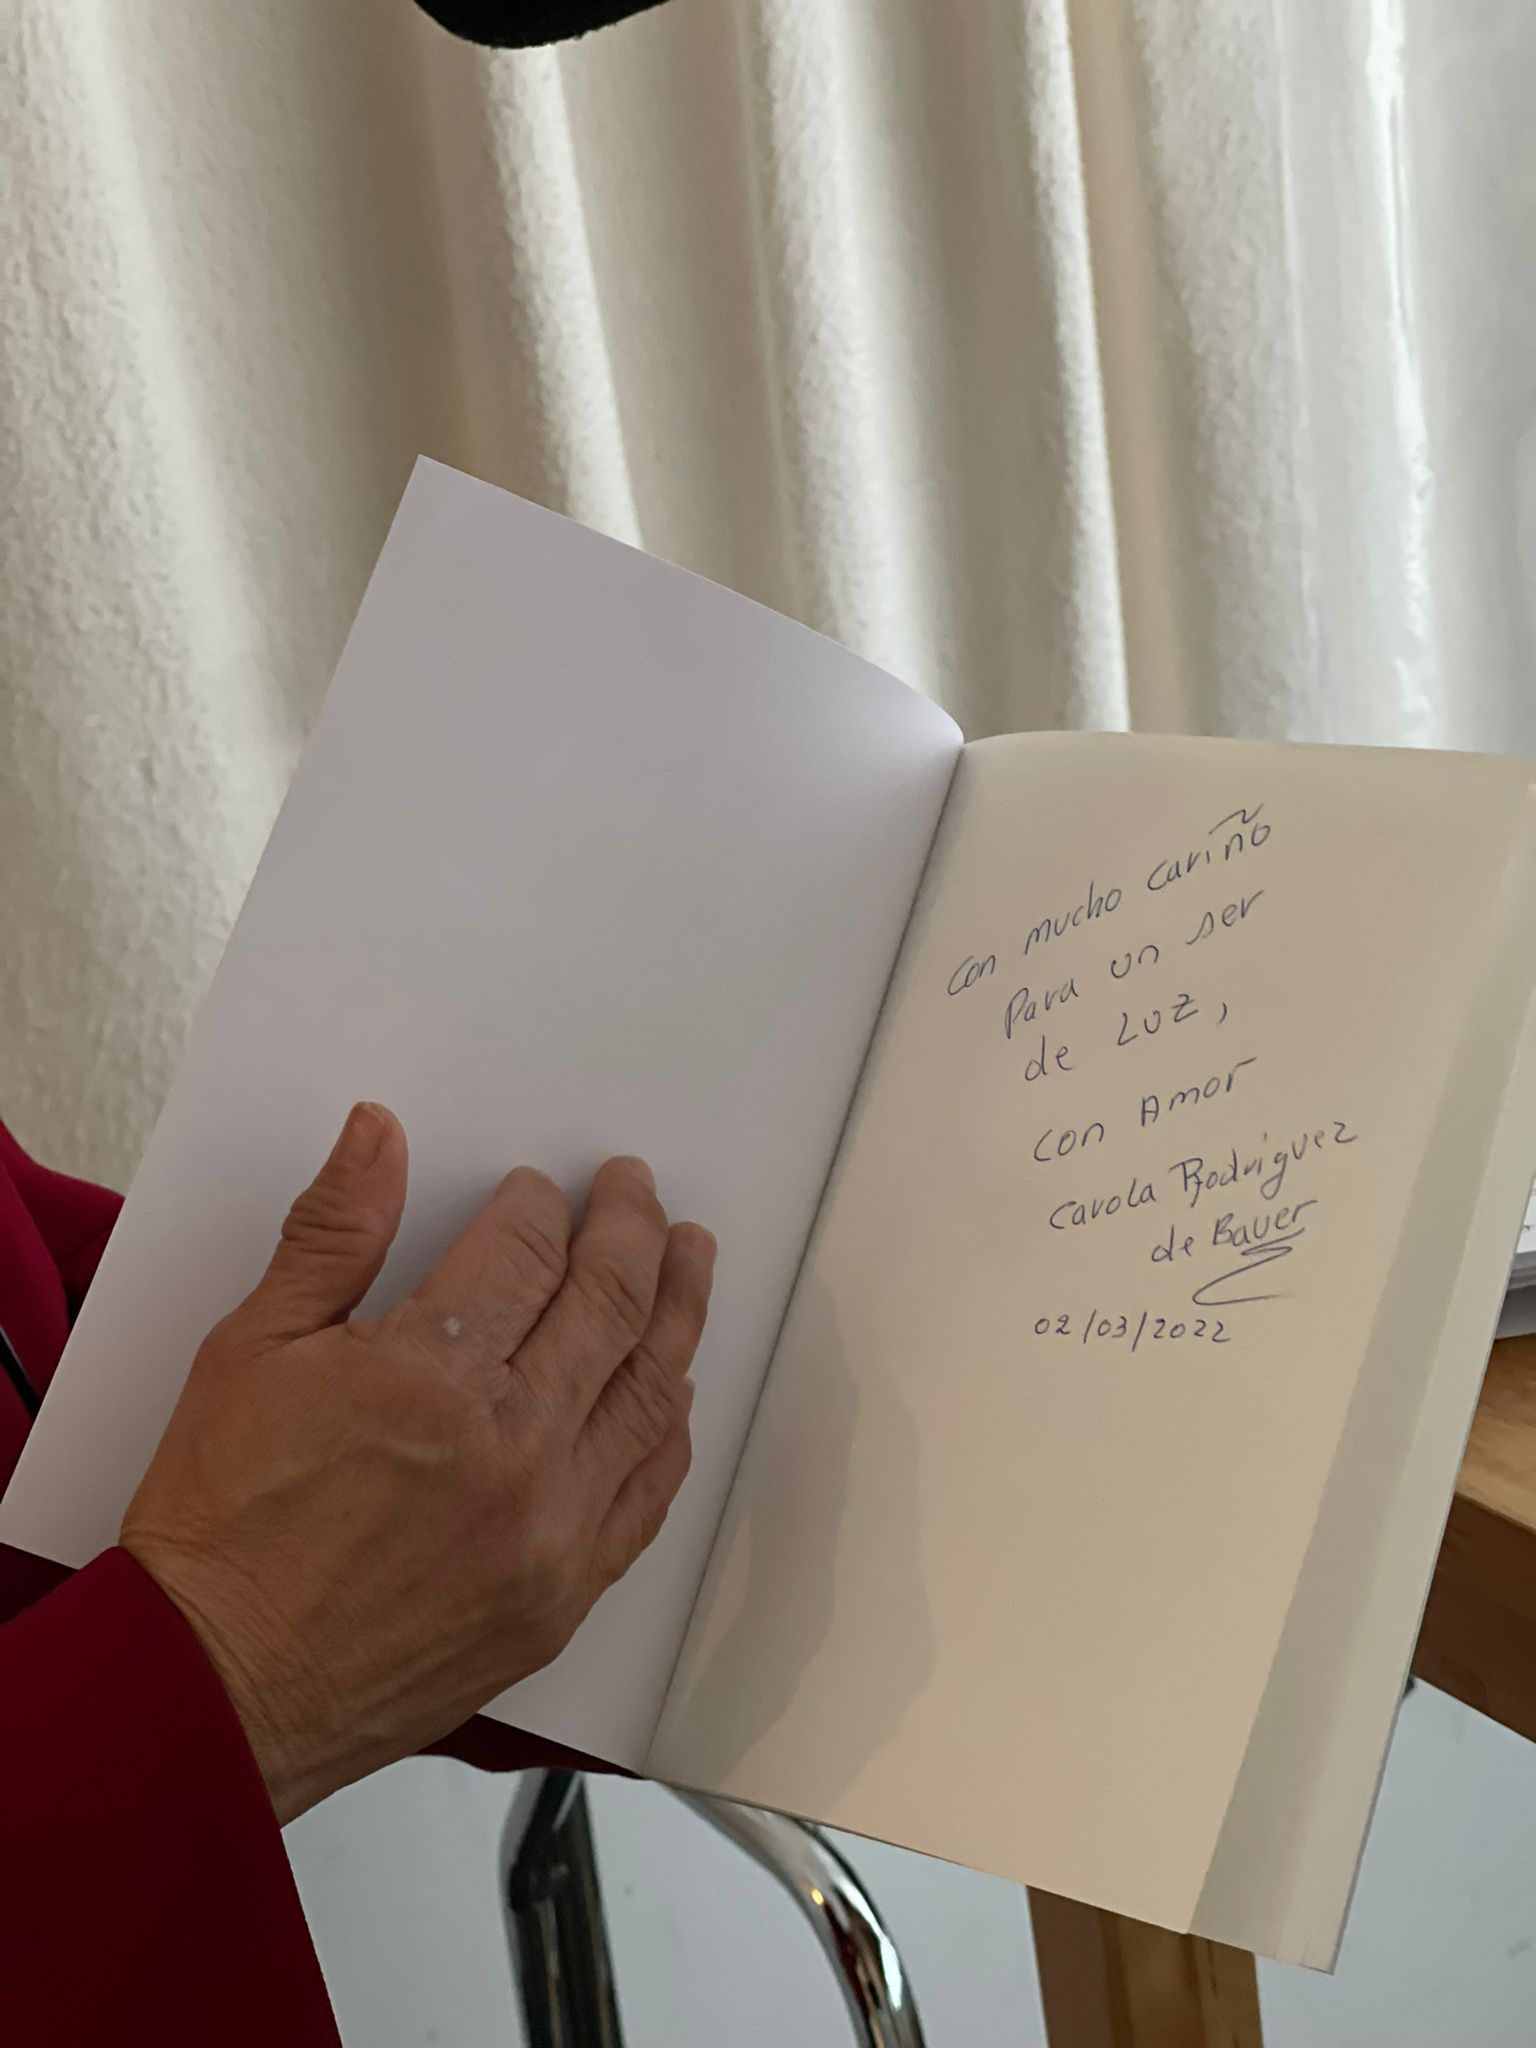 con mucho cariño
Para un ser
de LUZ,
con Amor
Carola Rodriguez
de Bauer
02/03/2022